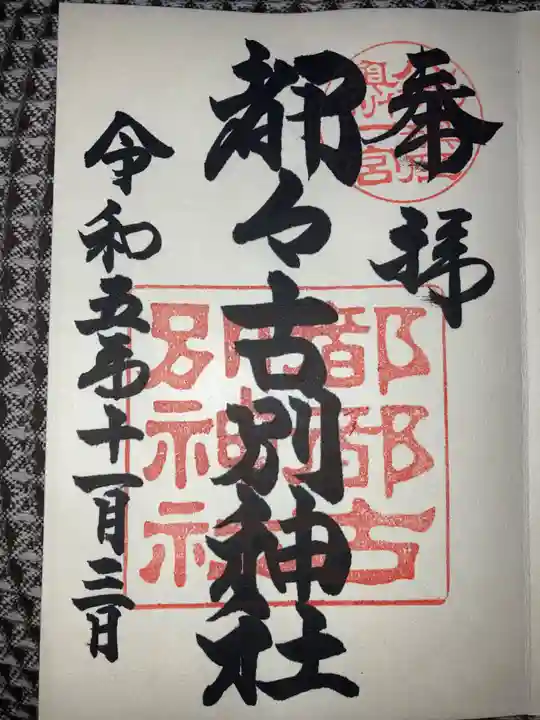 奉拝
都々古別神社
令和五年十一月三日
都都古
別神社
一宮